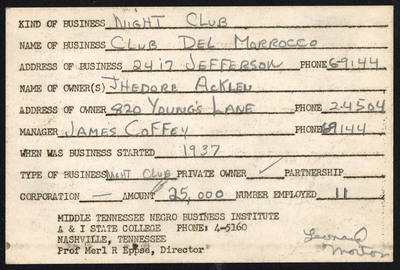 KIND OF BUSINESS NIGHT CLUB
NAME OF BUSINESS CLUB DEL MORROCCO
ADDRESS OF BUSINESS 2417 JEFFERSON PHONE 6-9144
NAME OF OWNER(S) THEDORE ACKLEN
ADDRESS OF OWNER 820 YOUNG'S LANE PHONE 2-4504
MANAGER JAMES COFFEY PHONE 69144
WHEN WAS BUSINESS STARTED 1937
TYPE OF BUSINESS NIGHT CLUB PRIVATE OWNER ✓ PARTNERSHIP
CORPORATION — AMOUNT 25,000 NUMBER EMPLOYED 11
MIDDLE TENNESSEE NEGRO BUSINESS INSTITUTE
A & I STATE COLLEGE PHONE: 4-5160
NASHVILLE, TENNESSEE
Prof Merl R Eppse, Director
Leonard
Morton